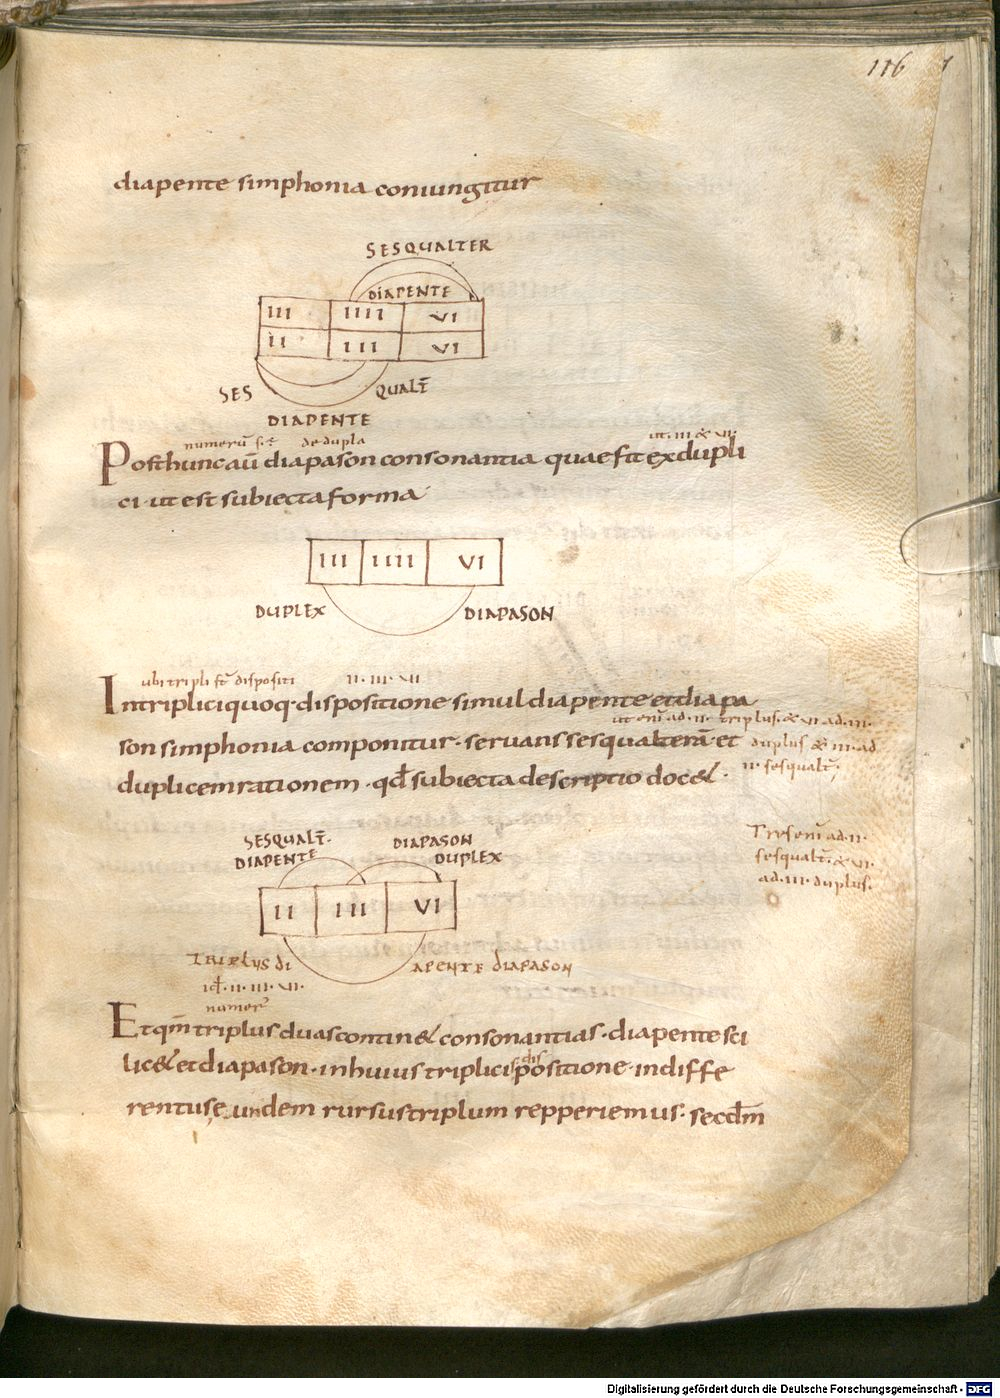 116
diapente simphonia coniungitur
SESQUALTER
DIAPENTE
III IIII VI
II III VI
SES QUALT̄
DIAPENTE
numerū st̄ de dupla ut · III & VI ·
Post hunc aū diapason consonantia quae fit ex dupli
ci · ut est subiecta forma
III IIII VI
DUPLEX DIAPASON
ubi tripli st̄ dispositi II · III · VI ·
In triplici quoq · dispositione simul diapente et diapa
ut eni ad · II · triplus · & VI ad · III ·
son simphonia componitur · servans sesqualterā et
duplus & III · ad
II · sesqualt̄ ·
duplicem rationem · qđ subiecta descriptio doc& ·
SESQUALT̄ · DIAPASON
DIAPENTE DUPLEX
Tres eni ad · II ·
sesqualt̄ · & VI ·
ad · III · duplus ·
II III VI
TRIPLUS DI APENTE DIAPASON
id · II · III · VI ·
numer
Et qm̄ triplus duas contin& consonantias · diapente sci
lic& et diapason · in huius triplici dispositione · indiffe
rentus eundem rursus triplum repperiemus · secdm̄
Digitalisierung gefördert durch die Deutsche Forschungsgemeinschaft - DFG